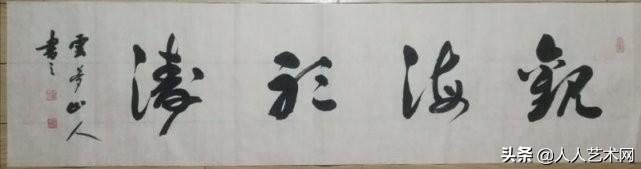 觀海聽濤
雲夢山人
書之
头条 @人人艺术网